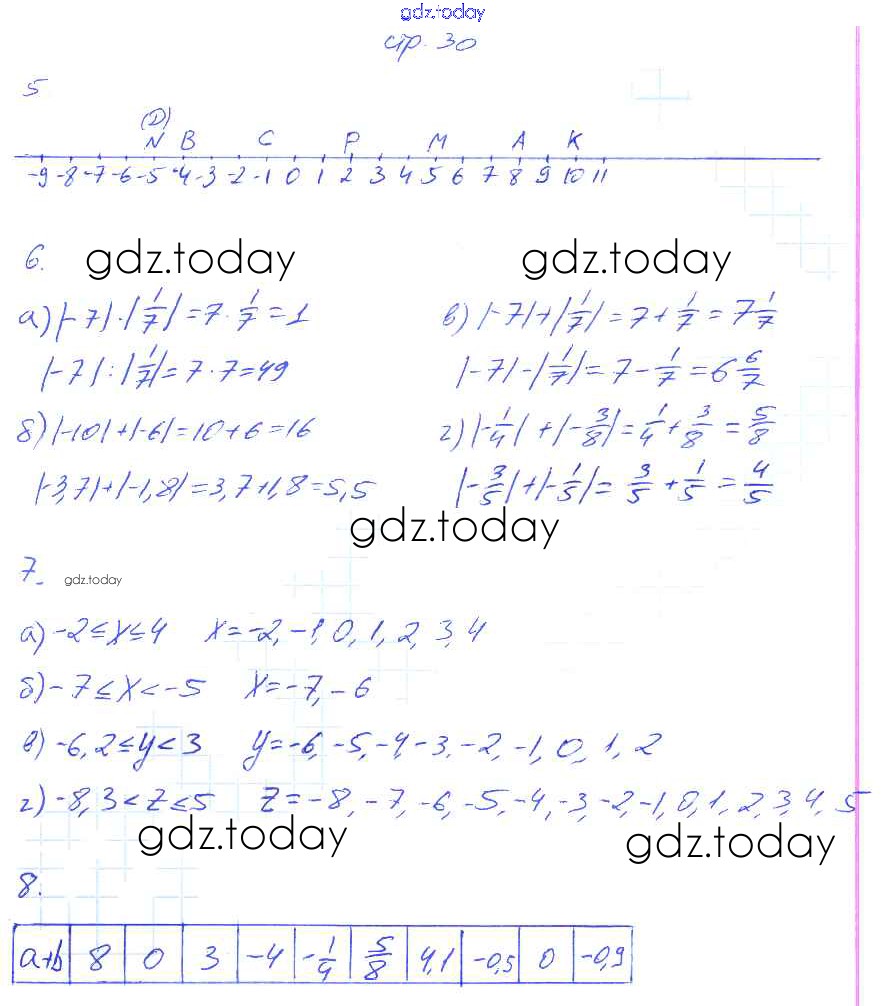 gdz.today
стр. 30
5
(D)
N B C P M A K
-9 -8 -7 -6 -5 -4 -3 -2 -1 0 1 2 3 4 5 6 7 8 9 10 11
6. gdz.today gdz.today
а) |-7|·|1/7| = 7·1/7 = 1
|-7| : |1/7| = 7·7 = 49
б) |-10|+|-6| = 10+6 = 16
|-3,7|+|-1,8| = 3,7+1,8 = 5,5
в) |-7|+|1/7| = 7+1/7 = 7 1/7
|-7|-|1/7| = 7-1/7 = 6 6/7
г) |-1/4|+|-3/8| = 1/4+3/8 = 5/8
|-3/5|+|-1/5| = 3/5+1/5 = 4/5
gdz.today
7. gdz.today
а) -2≤x≤4 x=-2, -1, 0, 1, 2, 3, 4
б) -7≤x<-5 x=-7, -6
в) -6,2≤y<3 y=-6, -5, -4, -3, -2, -1, 0, 1, 2
г) -8,3<z≤5 z=-8, -7, -6, -5, -4, -3, -2, -1, 0, 1, 2, 3, 4, 5
gdz.today gdz.today
8.
a+b 8 0 3 -4 -1/4 5/8 4,1 -0,5 0 -0,9